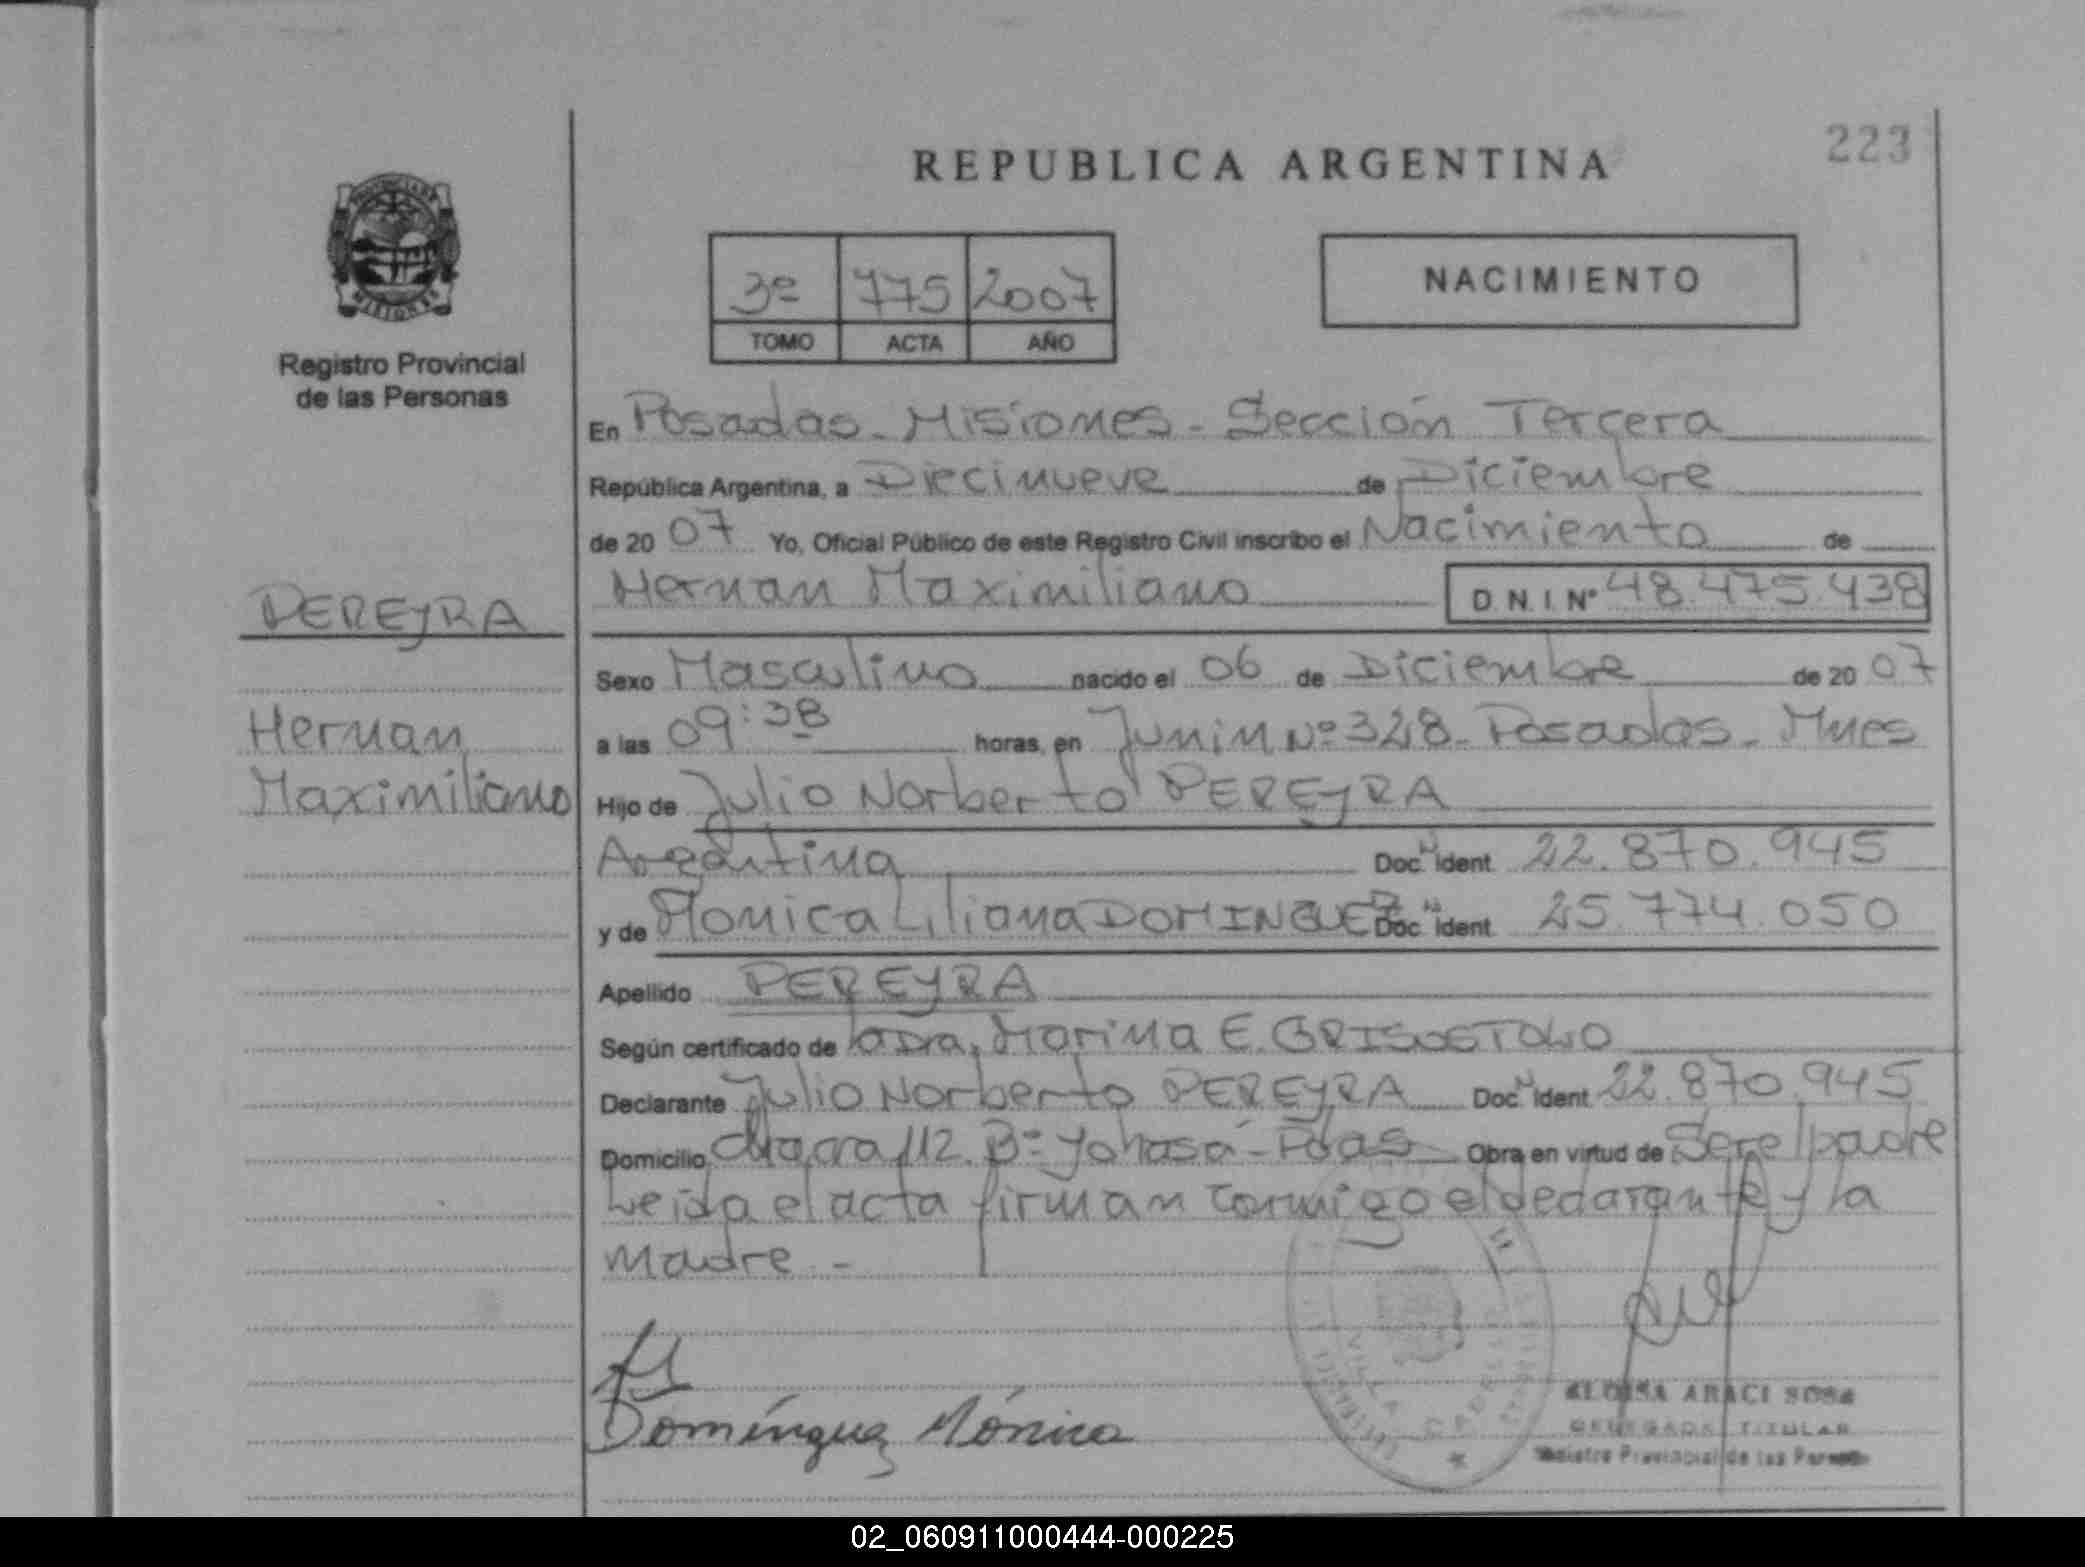 223
REPUBLICA ARGENTINA
3º 775 2007
TOMO ACTA AÑO
NACIMIENTO
Registro Provincial
de las Personas
En Posadas - Misiones - Sección Tercera
República Argentina, a Diecinueve de Diciembre
de 20 07 Yo, Oficial Público de este Registro Civil inscribo el Nacimiento de
PEREYRA
Hernan Maximiliano D.N.I. Nº 48.475.438
Sexo Masculino nacido el 06 de Diciembre de 20 07
Hernan
a las 09:38 horas, en Junin Nº 328 - Posadas - Mnes
Maximiliano
Hijo de Julio Norberto PEREYRA
Argentina Doc. Ident. 22.870.945
y de Monica Liliana DOMINGUEZ Doc. Ident. 25.774.050
Apellido PEREYRA
Según certificado de la Dra. Marina E.
Declarante Julio Norberto PEREYRA Doc. Ident. 22.870.945
Domicilio 112. Bº Yohasá - Pdas Obra en virtud de Ser el padre
Leida el acta firman conmigo el declarante y la
madre -
Domínguez Mónica
VILLA CABELLO
ARACI SOSA
DELEGADA TITULAR
Registro Provincial de las Personas
02_060911000444-000225